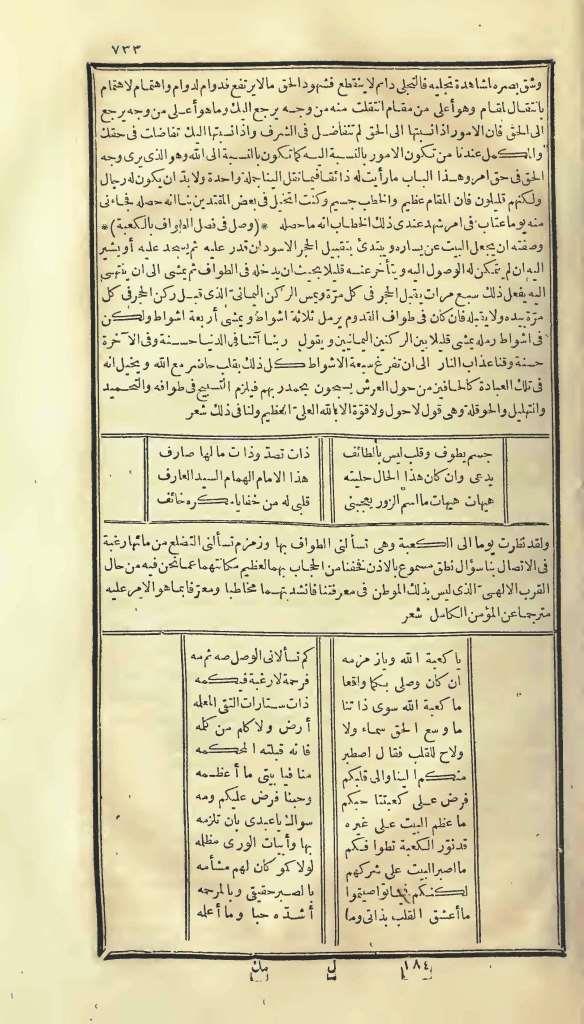 ٧٣٣
وشق بصره لمشاهدة تجليه فالتجلى دائم لا ينقطع فشهود الحق مالا يرتفع فدوام لدوام واهتمام لاهتمام
بانتقال لمقام وهو أعلى من مقام انتقلت منه من وجه يرجع اليك وما هو أعلى من وجه يرجع
الى الحق فان الامور اذا نسبتها الى الحق لم تتفاضل فى الشرف واذا نسبتها اليك تفاضلت فى حقك
والمكمل عندنا من تكون الامور بالنسبة اليه كما تكون بالنسبة الى الله وهو الذى يرى وجه
الحق فى كل امر وهذا الباب ما رأيت له ذائقا فيما نقل الينا جملة واحدة ولا بد أن يكون له رجال
ولكنهم قليلون فان المقام عظيم والخطب جسيم وكنت اتخيل فى بعض المقتدين بنا انه حصله فجاءنى
منه يوما عتاب فى امر شهد عندى ذلك الخطاب انه ما حصله *(وصل فى فصل الطواف بالكعبة)*
وصفته ان يجعل البيت عن يساره ويبتدئ بتقبيل الحجر الاسود ان قدر عليه ثم يسجد عليه أو يشير
اليه ان لم يتمكن له الوصول اليه ويتأخر عنه قليلا بحيث ان يدخله فى الطواف ثم يمشى الى ان ينتهى
اليه يفعل ذلك سبع مرات يقبل الحجر فى كل مرّة ويمس الركن اليمانىّ الذى قبل ركن الحجر فى كل
مرّة بيده ولا يقبله فان كان فى طواف القدوم يرمل ثلاثة اشواط ويمشى أربعة اشواط ولكن
فى اشواط رمله يمشى قليلا بين الركنين اليمانيين ويقول ربنا آتنا فى الدنيا حسنة وفى الآخرة
حسنة وقنا عذاب النار الى ان تفرغ سبعة الاشواط كل ذلك بقلب حاضر مع الله ويخيل انه
فى تلك العبادة كالحافين من حول العرش يسبحون بحمد ربهم فيلزم التسبيح فى طوافه والتحميد
والتهليل والحوقلة وهى قول لا حول ولا قوّة الا بالله العلىّ العظيم ولنا فى ذلك شعر
جسم يطوف وقلب ليس بالطائف ذات تصدّ وذات ما لها صارف
يدعى وان كان هذا الحال حليته هذا الامام الهمام السيد العارف
هيهات هيهات ما اسم الزور يعجبنى قلبى له من خفايا مكره خائف
ولقد نظرت يوما الى الكعبة وهى تسألنى الطواف بها وزمزم تسألنى التضلع من مائها رغبة
فى الاتصال بنا سؤال نطق مسموع بالاذن فخفنا من الحجاب بهما لعظيم مكانتهما عما نحن فيه من حال
القرب الالهىّ الذى ليس بذلك الموطن فى معرفتنا فانشدتهما مخاطبا ومعرّفا بما هو الامر عليه
مترجما عن المؤمن الكامل شعر
يا كعبة الله ويا زمزمه كم تسألانى الوصل صه ثم مه
ان كان وصلى بكما واقعا فرحمة لا رغبة فيكمه
ما كعبة الله سوى ذاتنا ذات ستارات التقى المعلمه
ما وسع الحق سماء ولا أرض ولا كلم من كلمه
ولاح للقلب فقال اصطبر فانه قبلتنا المحكمه
منكم الينا والى قلبكم منا فيا بيتى ما أعظمه
فرض على كعبتنا حبكم وحبنا فرض عليكم ومه
ما عظم البيت على غيره سواك يا عبدى بان تلزمه
قد نوّر الكعبة تطوافكم بها وأبيات الورى مظلمه
ما اصبر البيت على شركهم لولاكمو كان لهم مشأمه
لكنكم اصبتموا بالصبر حقيقى وبالمرحمه
ما أعشق القلب بذاتى وما أشدّه حبا وما أعلمه
١٨٤ ل مك